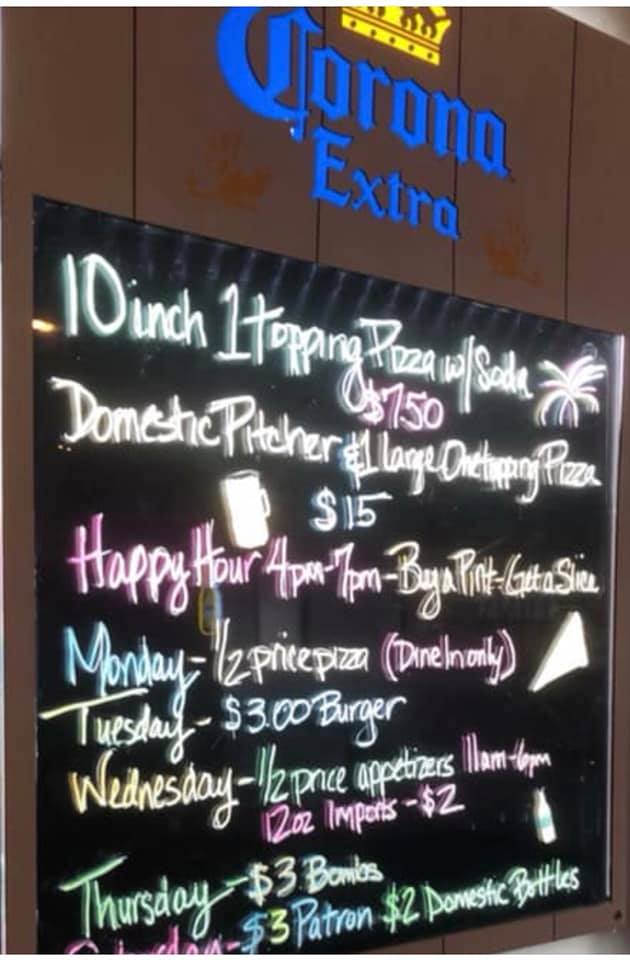 Corona
Extra
10 inch 1 topping Pizza w/ Soda
$7.50
Domestic Pitcher & 1 large One topping Pizza
$15
Happy Hour 4pm-7pm - Buy a Pint - Get a Slice
Monday - 1/2 price pizza (Dine In only)
Tuesday - $3.00 Burger
Wednesday - 1/2 price appetizers 11am-6pm
12oz Imports - $2
Thursday - $3 Bombs
$3 Patron $2 Domestic Bottles